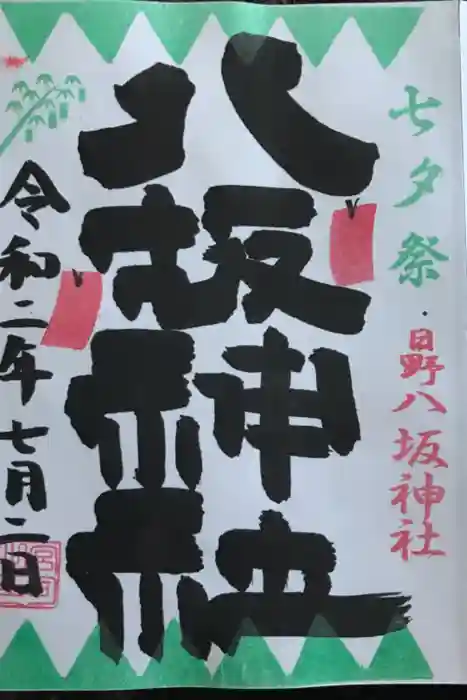 七夕祭・日野八坂神社
八坂神社
令和二年七月二日